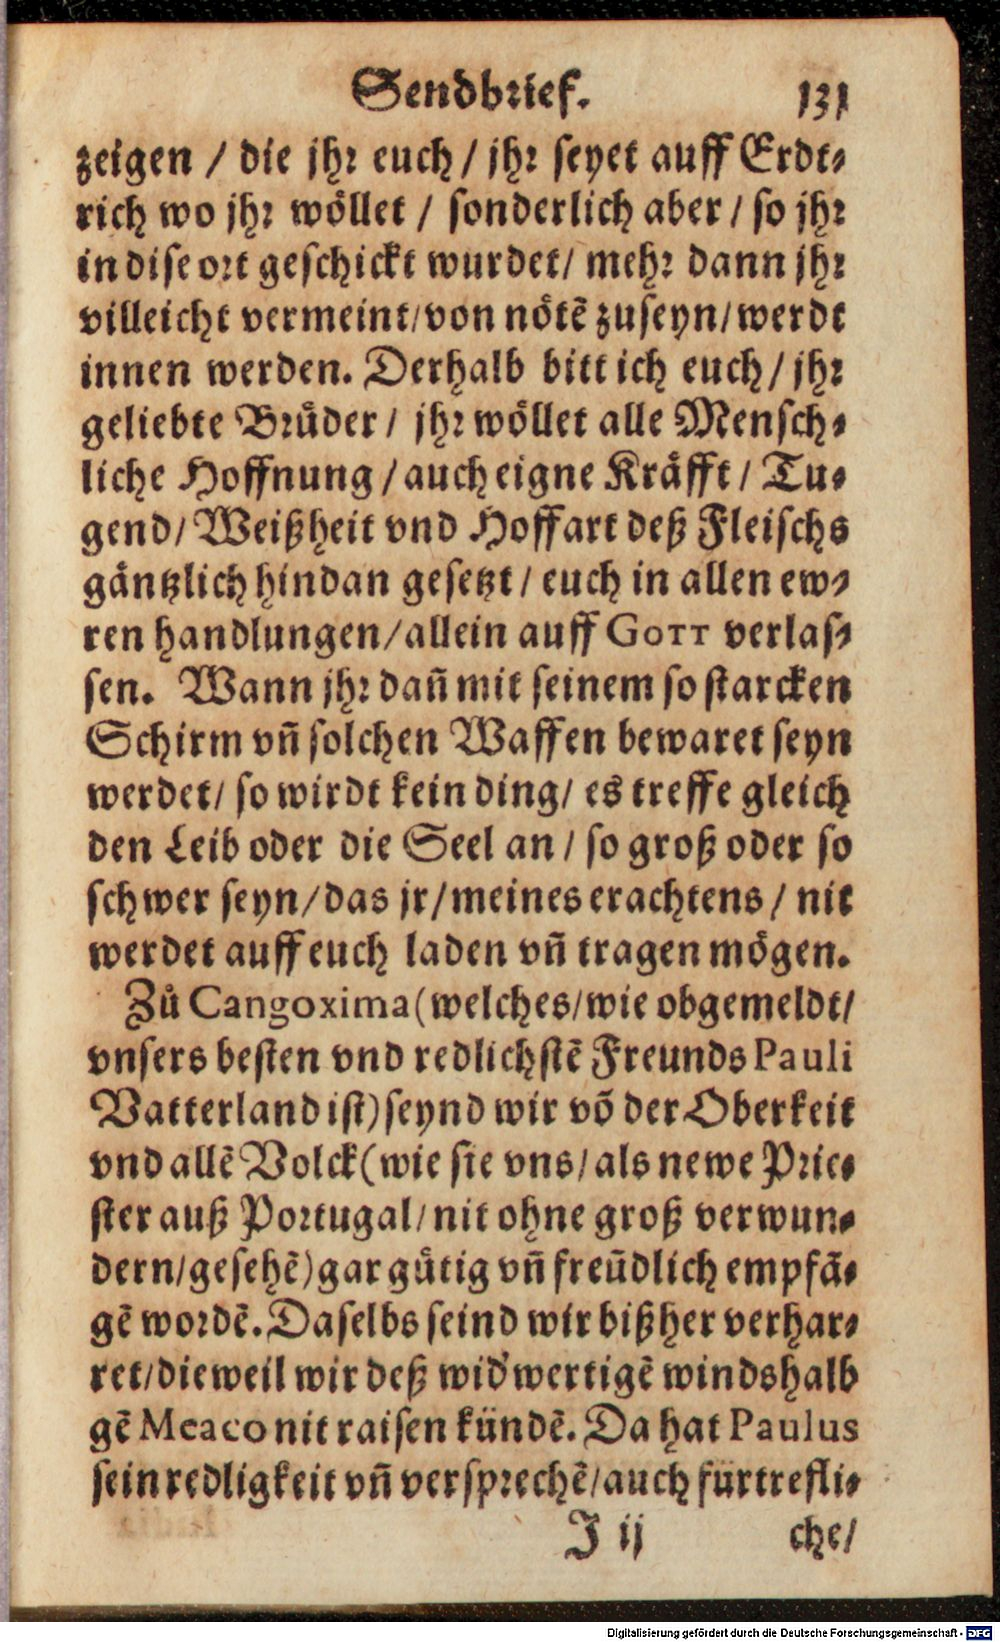 Sendbrief. 131
zeigen / die jhr euch / jhr seyet auff Erdt-
rich wo jhr wöllet / sonderlich aber / so jhr
in dise ort geschickt wurdet / mehr dann jhr
villeicht vermeint / von nötẽ zuseyn / werdt
innen werden. Derhalb bitt ich euch / jhr
geliebte Brüder / jhr wöllet alle Mensch-
liche Hoffnung / auch eigne Kräfft / Tu-
gend / Weißheit vnd Hoffart deß Fleischs
gäntzlich hindan gesetzt / euch in allen ew-
ren handlungen / allein auff GOTT verlas-
sen. Wann jhr dañ mit seinem so starcken
Schirm vñ solchen Waffen bewaret seyn
werdet / so wirdt kein ding / es treffe gleich
den Leib oder die Seel an / so groß oder so
schwer seyn / das jr / meines erachtens / nit
werdet auff euch laden vñ tragen mögen.
Zů Cangoxima (welches / wie obgemeldt /
vnsers besten vnd redlichstẽ Freunds Pauli
Vatterland ist) seynd wir võ der Oberkeit
vnd allẽ Volck (wie sie vns / als newe Prie-
ster auß Portugal / nit ohne groß verwun-
dern / gesehẽ) gar gütig vñ freũdlich empfã-
gẽ wordẽ. Daselbs seind wir bißher verhar-
ret / dieweil wir deß wid'wertigẽ winds halb
gẽ Meaco nit raisen kündẽ. Da hat Paulus
sein redligkeit vñ versprechẽ / auch fürtrefli-
J ij che /
Digitalisierung gefördert durch die Deutsche Forschungsgemeinschaft - DFG